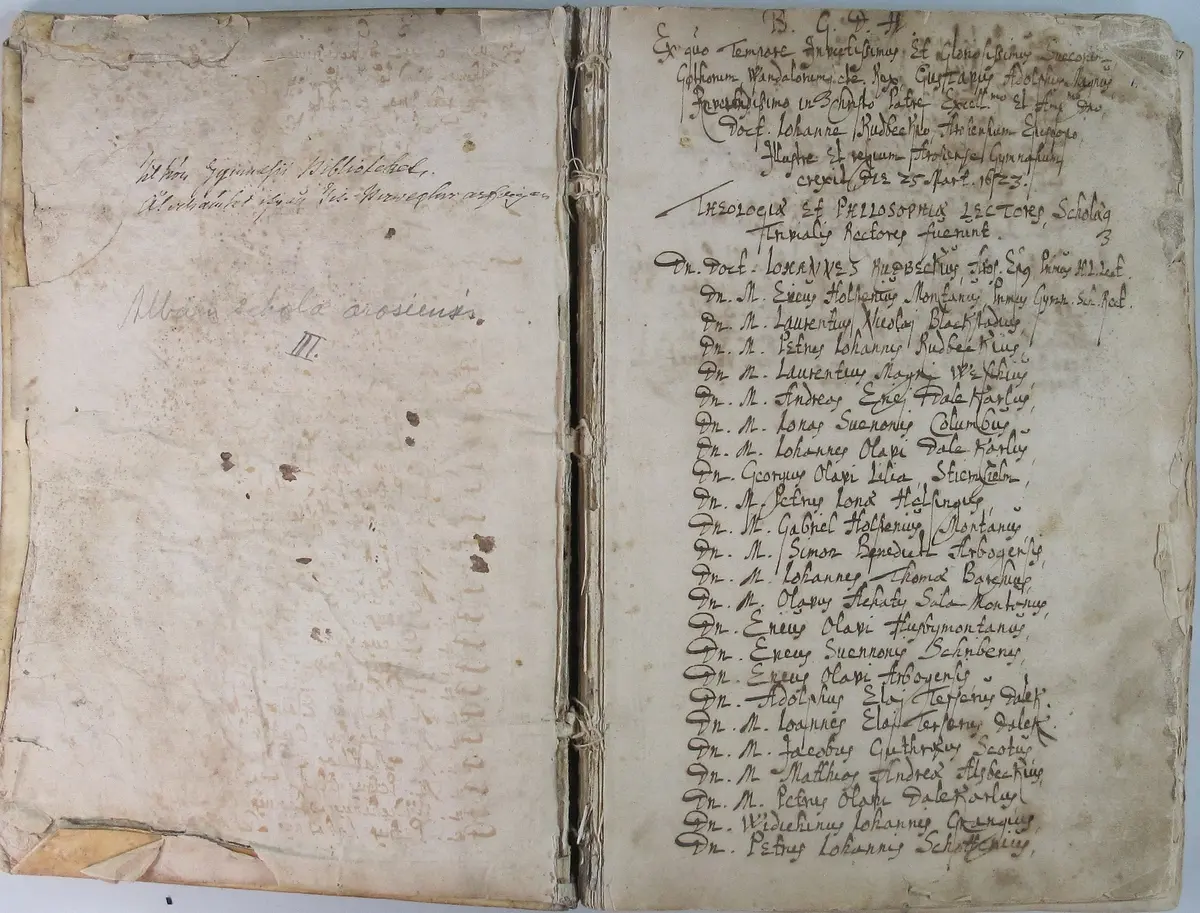 Gymnasii Bibliotehet.
Album schola arosiensis.
III.
B. G. D. A
Ex quo Tempore Invictissimus Et Gloriosissimus Suecorum
Gothorum Wandalorumq; etc Rex Gustavus Adolphus Magnus,
in Christo Patre Excell.mo Et Dno,
Doct. Iohanne Rudbeckio Arosiensium Episcopo,
Illustre Et regium Arosiense Gymnasium
erexit, Die 25 Mart. 1623.
THEOLOGIÆ Et PHILOSOPHIÆ LECTORES, Scholæq
Trivialis Rectores fuerunt.
3
Dn. Doct. IOHANNES RUDBECKIUS, Aros. Ep9 Primus
Dn. M. Ericus Holstenius Montanus, Primus Gymn. Sch. Rect.
Dn. M. Laurentius Nicolaj Blackstadius,
Dn. M. Petrus Iohannis Rudbeckius,
Dn. M. Laurentius Magni
Dn. M. Andreas Erici DaleKarlus,
Dn. M. Ionas Suenonis Columbus,
Dn. M. Iohannes Olavi DaleKarlus,
Dn. Georgius Olavi Lilia, Stiernhielm,
Dn. M. Petrus Ionæ Helsingus,
Dn. M. Gabriel Holstenius Montanus,
Dn. M. Simon Benedicti Arbogensis,
Dn. M. Iohannes Thomæ
Dn. M. Olavus Achatij Sala Montanus,
Dn. Ericus Olavi Husbymontanus,
Dn. Ericus Suenonis Schriberus,
Dn. Ericus Olavi Arbogensis
Dn. Adolphus Elaj Terserus DaleK.
Dn. M. Ioannes Elaj Terserus DaleK.
Dn. M. Jacobus Guthræus Scotus
Dn. M. Matthias Andreæ Alsbeckius,
Dn. M. Petrus Olavi DaleKarlus
Dn. Widichinus Iohannis Grangius,
Dn. Petrus Iohannis Schottenius,